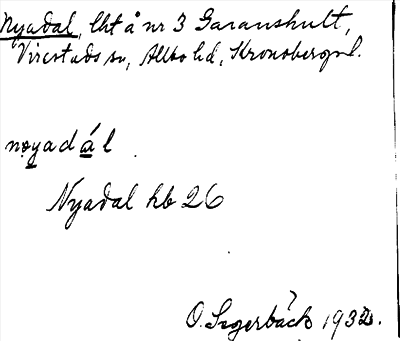 Nyadal, lht å nr 3 Garanshult,
Virestads sn, Allbo hd, Kronobergs l.
nọyadál
Nyadal hb 26
O. Segerbäck 1932.